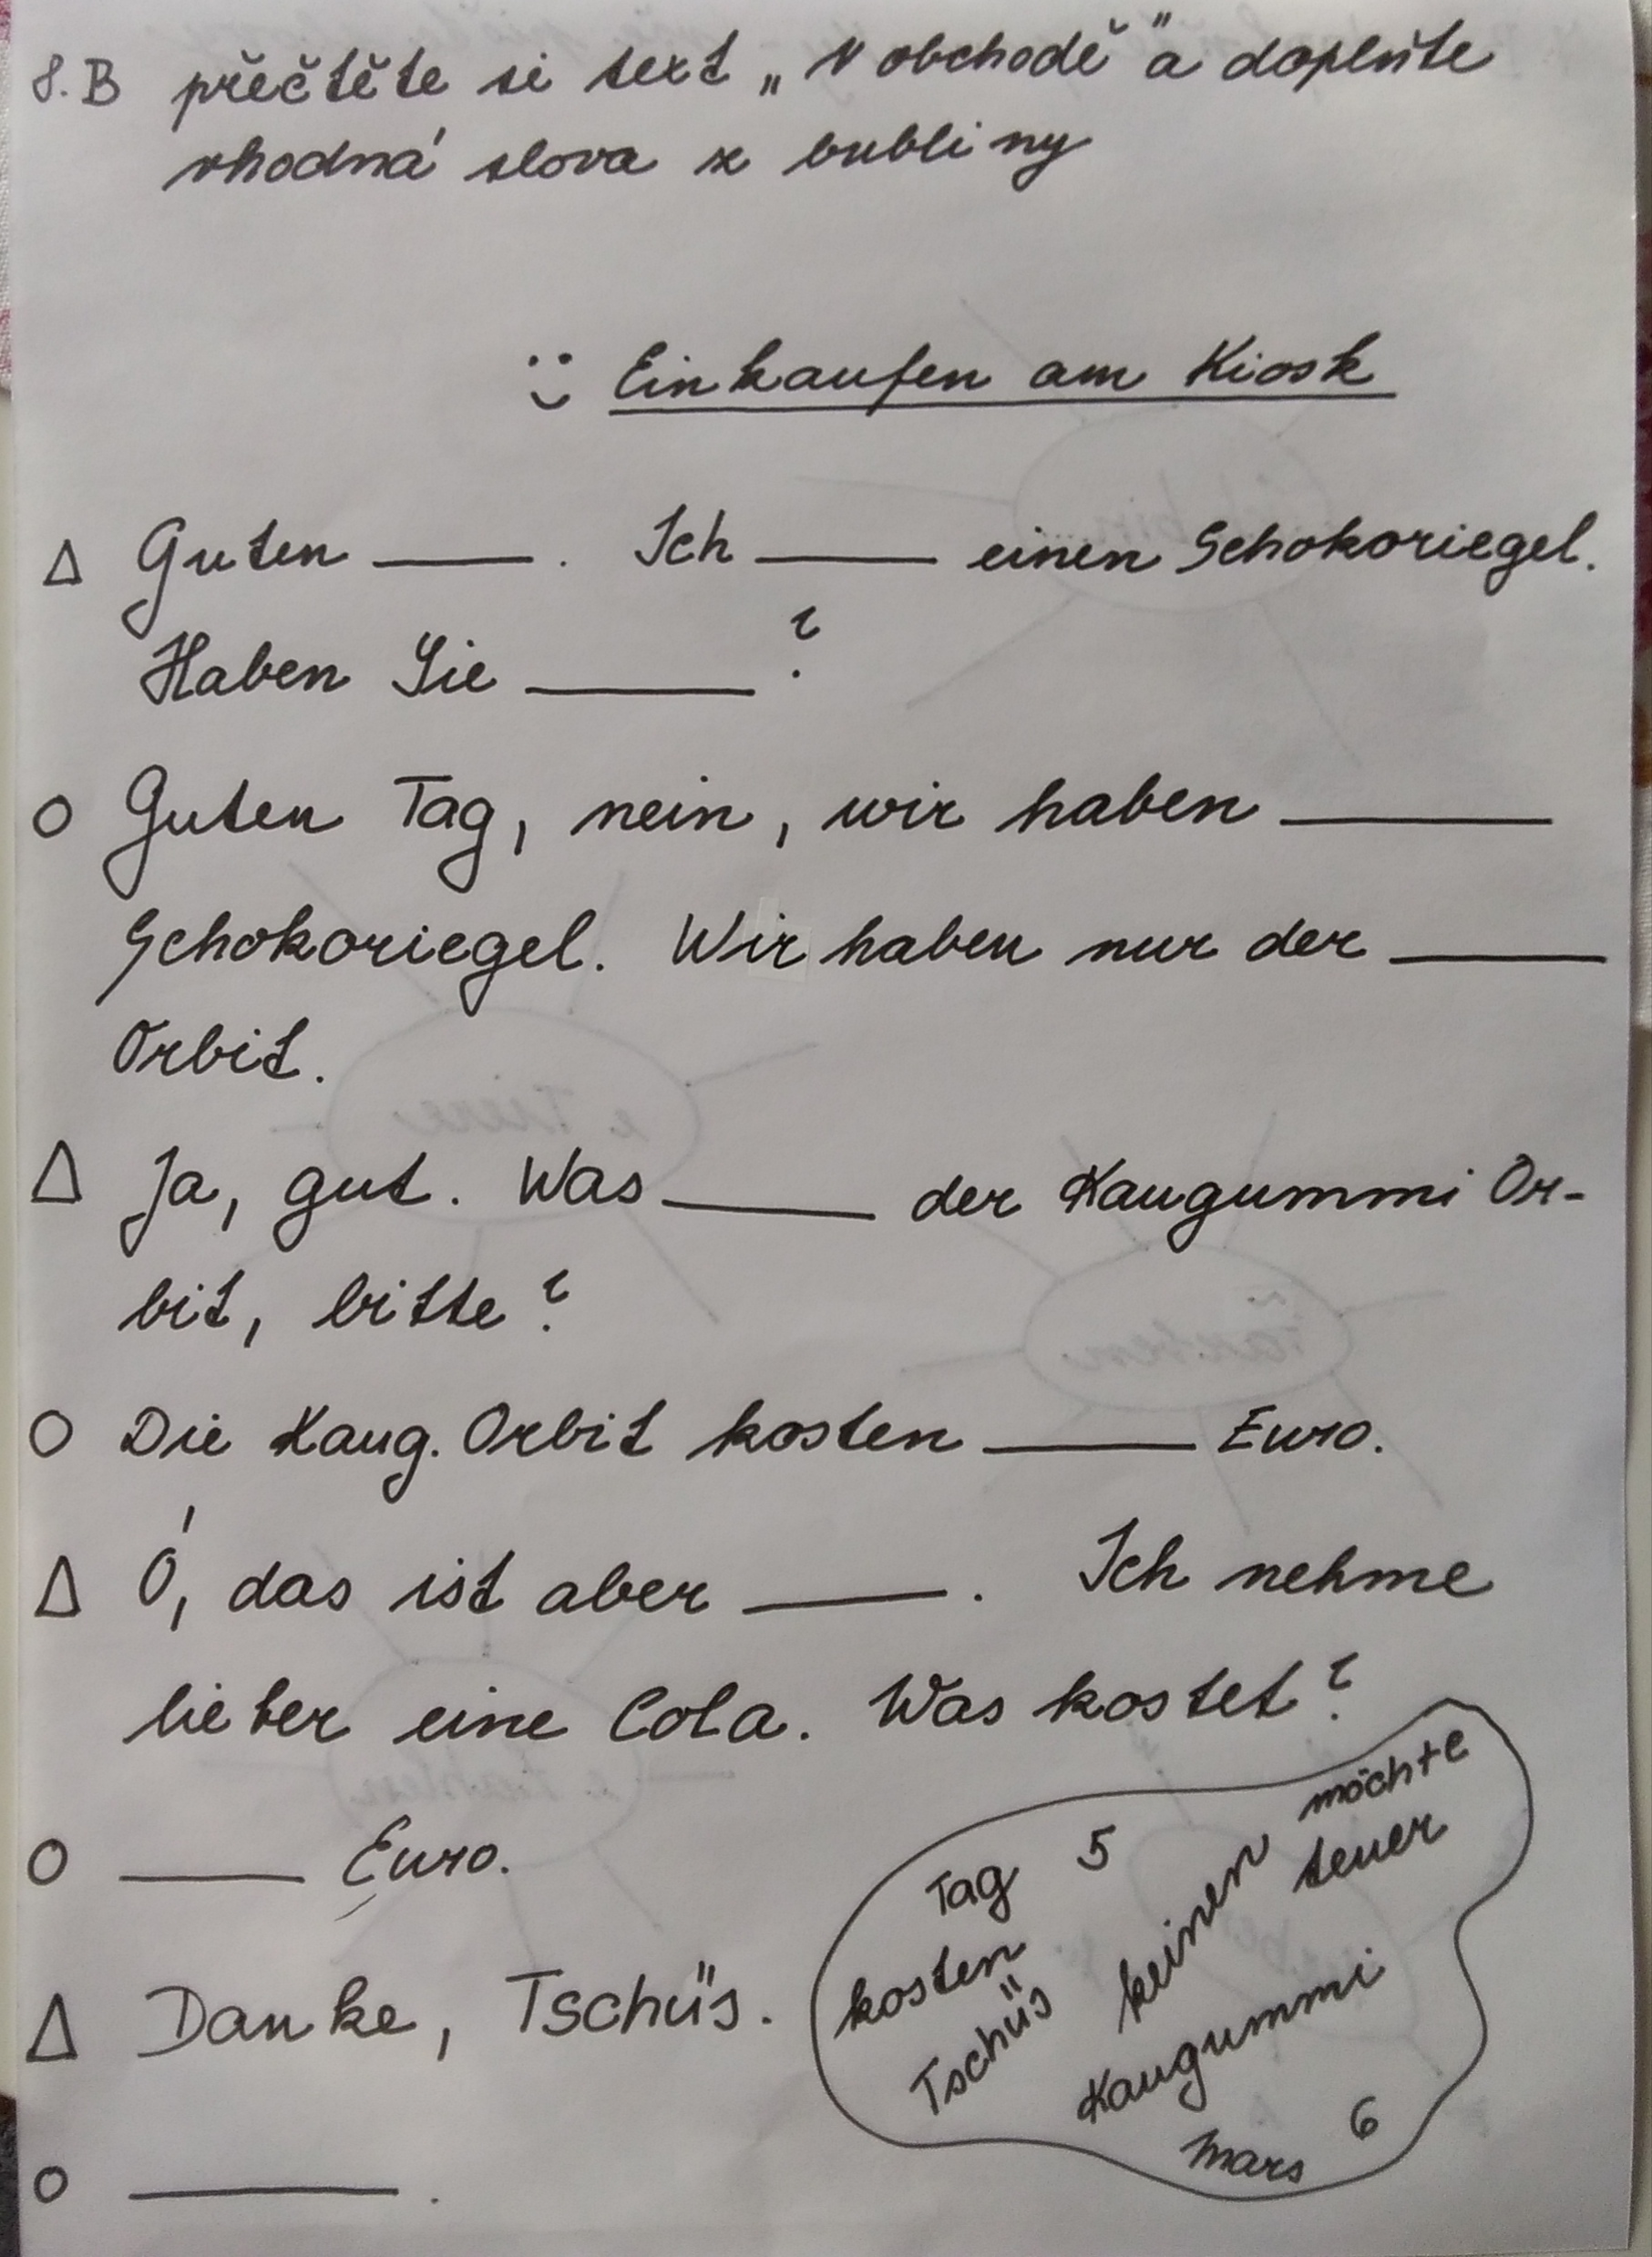 8.B přečtěte si text „V obchodě" a doplňte
vhodná slova z bubliny
Einkaufen am Kiosk
Δ Guten ____. Ich ____ einen Schokoriegel.
Haben Sie ____?
O Guten Tag, nein, wir haben ____
Schokoriegel. Wir haben nur der ____
Orbit.
Δ Ja, gut. Was ____ der Kaugummi Or-
bit, bitte?
O Die Kaug. Orbit kosten ____ Euro.
Δ Ó, das ist aber ____. Ich nehme
lieber eine Cola. Was kostet?
O ____ Euro.
Δ Danke, Tschüs.
O ____.
möchte
Tag 5
teuer
keinen
kosten
Tschüs
Kaugummi
Mars 6